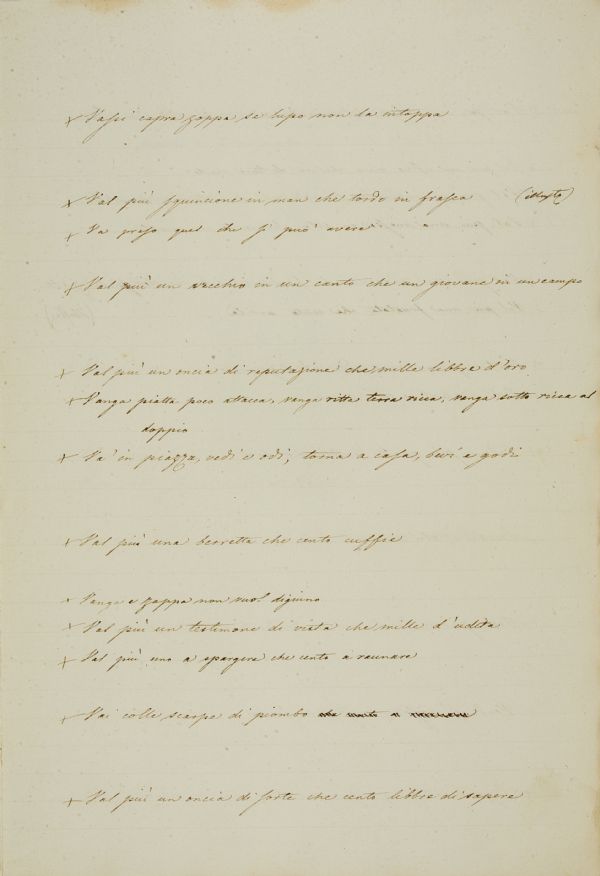 × Vassi capra zoppa se lupo non la intoppa
× Val più fringuello in man che tordo in frasca
× Va preso quel che si può avere
× Val più un vecchio in un canto che un giovane in un campo
× Val più un oncia di reputazione che mille libbre d'oro
× Vanga piatta poco attacca, vanga ritta terra ricca, vanga sotto ricca al
doppio
× Va' in piazza, vedi e odi; torna a casa, bevi e godi
× Val più una berretta che cento cuffie
× Vanga e zappa non vuol digiuno
× Val più un testimone di vista che mille d'udita
× Val più uno a spargere che cento a raunare
× Vai colle scarpe di piombo
× Val più un oncia di sorte che cento libbre di sapere